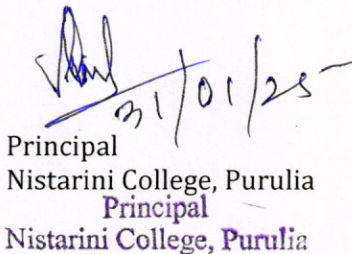 31/01/25
Principal
Nistarini College, Purulia
Principal
Nistarini College, Purulia